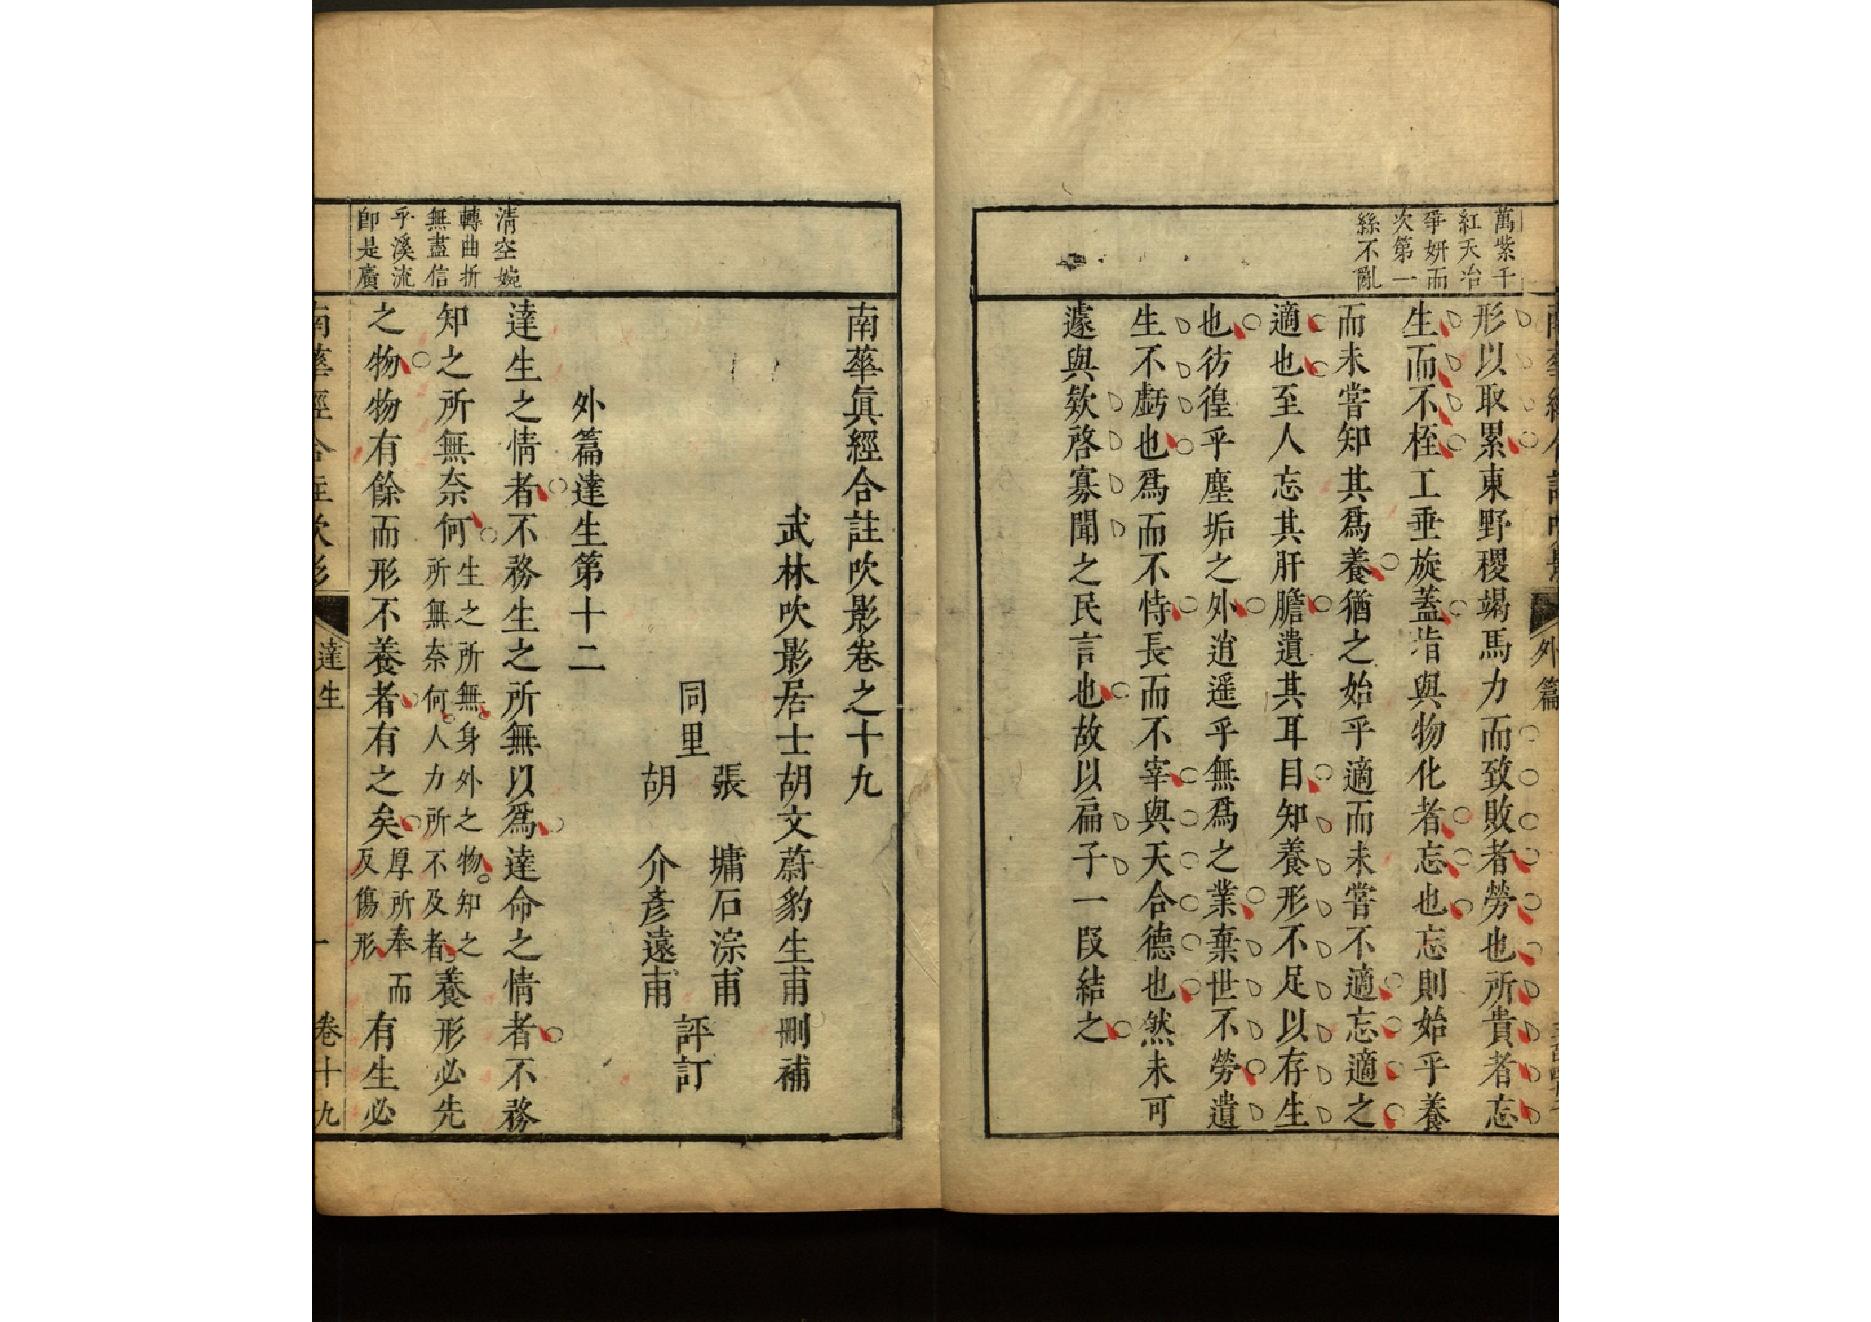 萬紫千
紅天冶
爭妍而
次第一
絲不亂
形以取累東野稷竭馬力而致敗者勞也所貴者忘
生而不桎工垂旋蓋指與物化者忘也忘則始乎養
而未嘗知其爲養猶之始乎適而未嘗不適忘適之
適也至人忘其肝膽遺其耳目知養形不足以存生
也彷徨乎塵垢之外逍遥乎無爲之業棄世不勞遺
生不虧也爲而不恃長而不宰與天合德也然未可
遽與欸啓寡聞之民言也故以扁子一段結之
外篇
南華眞經合註吹影卷之十九
武林吹影居士胡文蔚豹生甫刪補
同里
張 墉石淙甫
胡 介彥遠甫
評訂
外篇達生第十二
清空婉
轉曲折
無盡信
乎溪流
卽是廣
達生之情者不務生之所無以爲達命之情者不務
知之所無奈何生之所無身外之物知之所無奈何人力所不及者養形必先
之物物有餘而形不養者有之矣厚所奉而反傷形有生必
南華經合註吹影
達生
一
卷十九